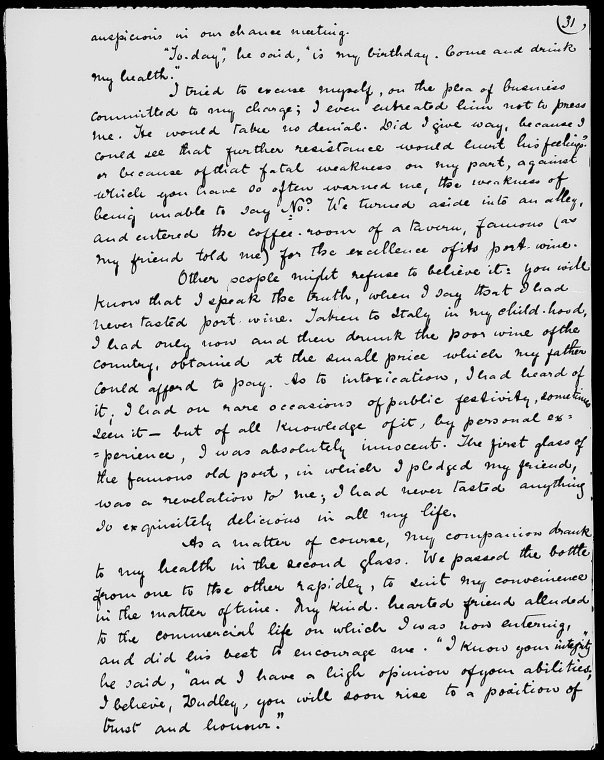 (31)
auspicious in our chance meeting.
"To-day," he said, "is my birthday. Come and drink
my health."
I tried to excuse myself, on the plea of business
committed to my charge; I even entreated him not to press
me. He would take no denial. Did I give way, because I
could see that further resistance would hurt his feelings?
or because of that fatal weakness on my part, against
which you have so often warned me, the weakness of
being unable to say No? We turned aside into an alley,
and entered the coffee-room of a tavern, famous (as
my friend told me) for the excellence of its port-wine.
Other people might refuse to believe it: you will
know that I speak the truth, when I say that I had
never tasted port-wine. Taken to Italy in my child-hood,
I had only now and then drunk the poor wine of the
country, obtained at the small price which my father
could afford to pay. As to intoxication, I had heard of
it; I had on rare occasions of public festivity, sometimes
seen it — but of all knowledge of it, by personal ex=
=perience, I was absolutely innocent. The first glass of
the famous old port, in which I pledged my friend,
was a revelation to me; I had never tasted anything
so exquisitely delicious in all my life.
As a matter of course, my companion drank
to my health in the second glass. We passed the bottle
from one to the other rapidly, to suit my convenience
in the matter of time. My kind-hearted friend alluded
to the commercial life on which I was now entering,
and did his best to encourage me. "I know your integrity,"
he said, "and I have a high opinion of your abilities.
I believe, Dudley, you will soon rise to a position of
trust and honour."